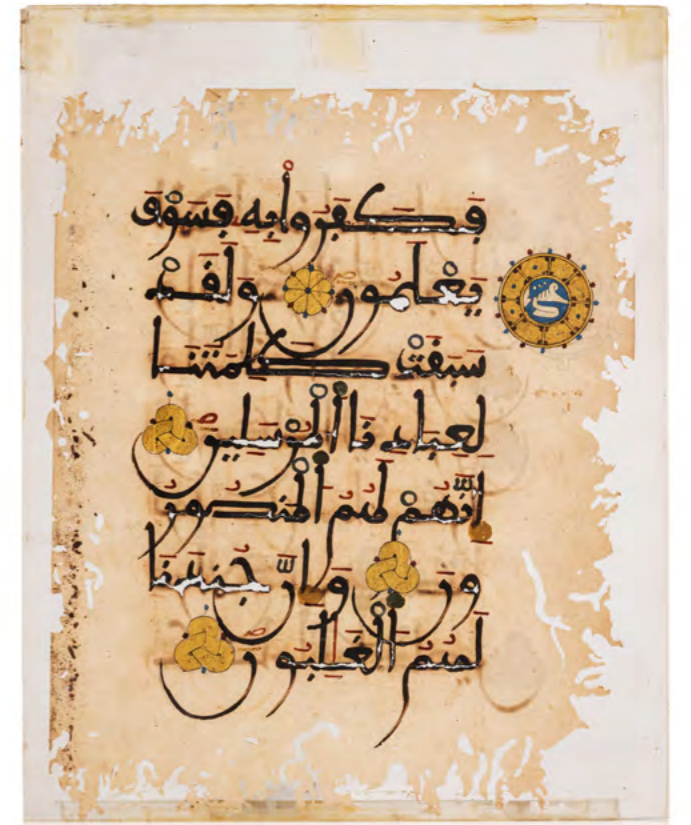 فكفروا به فسوف
يعلمون ولقد
سبقت كلمتنا
لعبادنا المرسلين
إنهم لهم المنصور
ون وإن جندنا
لهم الغلبون